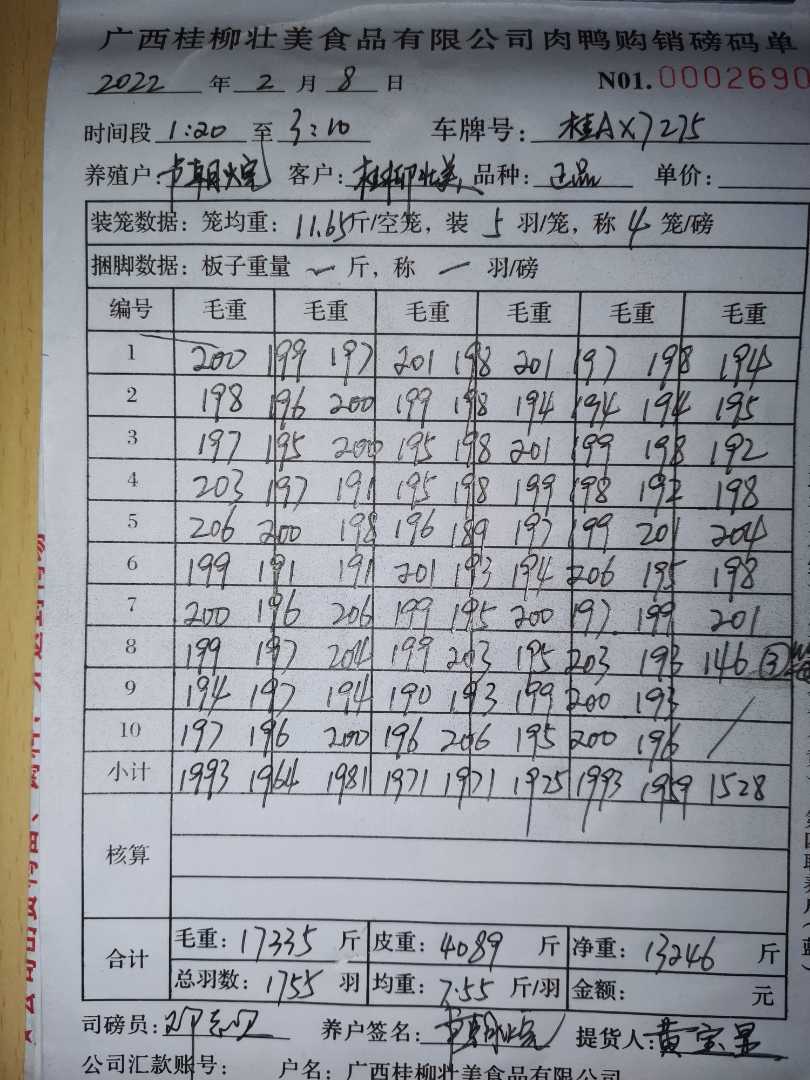 广西桂柳壮美食品有限公司肉鸭购销磅码单
2022 年 2 月 8 日 N01. 0002690
时间段 1:20 至 3:10 车牌号: 桂AX7275
养殖户: 客户: 桂柳壮美 品种: 正品 单价:
装笼数据: 笼均重: 11.65斤/空笼, 装 5 羽/笼, 称 4 笼/磅
捆脚数据: 板子重量 — 斤, 称 — 羽/磅
编号 毛重 毛重 毛重 毛重 毛重 毛重
1 200 199 197 201 198 201 197 198 194
2 198 196 200 199 198 194 194 194 195
3 197 195 200 195 198 201 199 198 192
4 203 197 191 195 198 199 198 192 198
5 206 200 198 196 189 197 199 201 204
6 199 191 191 201 193 194 206 195 198
7 200 196 206 199 195 200 197 199 201
8 199 197 204 199 203 195 203 193 146 ③
9 194 197 194 190 193 199 200 193
10 197 196 200 196 206 195 200 196 /
小计 1993 1964 1981 1971 1971 1925 1993 1959 1528
核算
合计 毛重: 17335 斤 皮重: 4089 斤 净重: 13246 斤
总羽数: 1755 羽 均重: 7.55 斤/羽 金额: 元
司磅员: 养户签名: 提货人: 黄宝星
公司汇款账号: 户名: 广西桂柳壮美食品有限公司